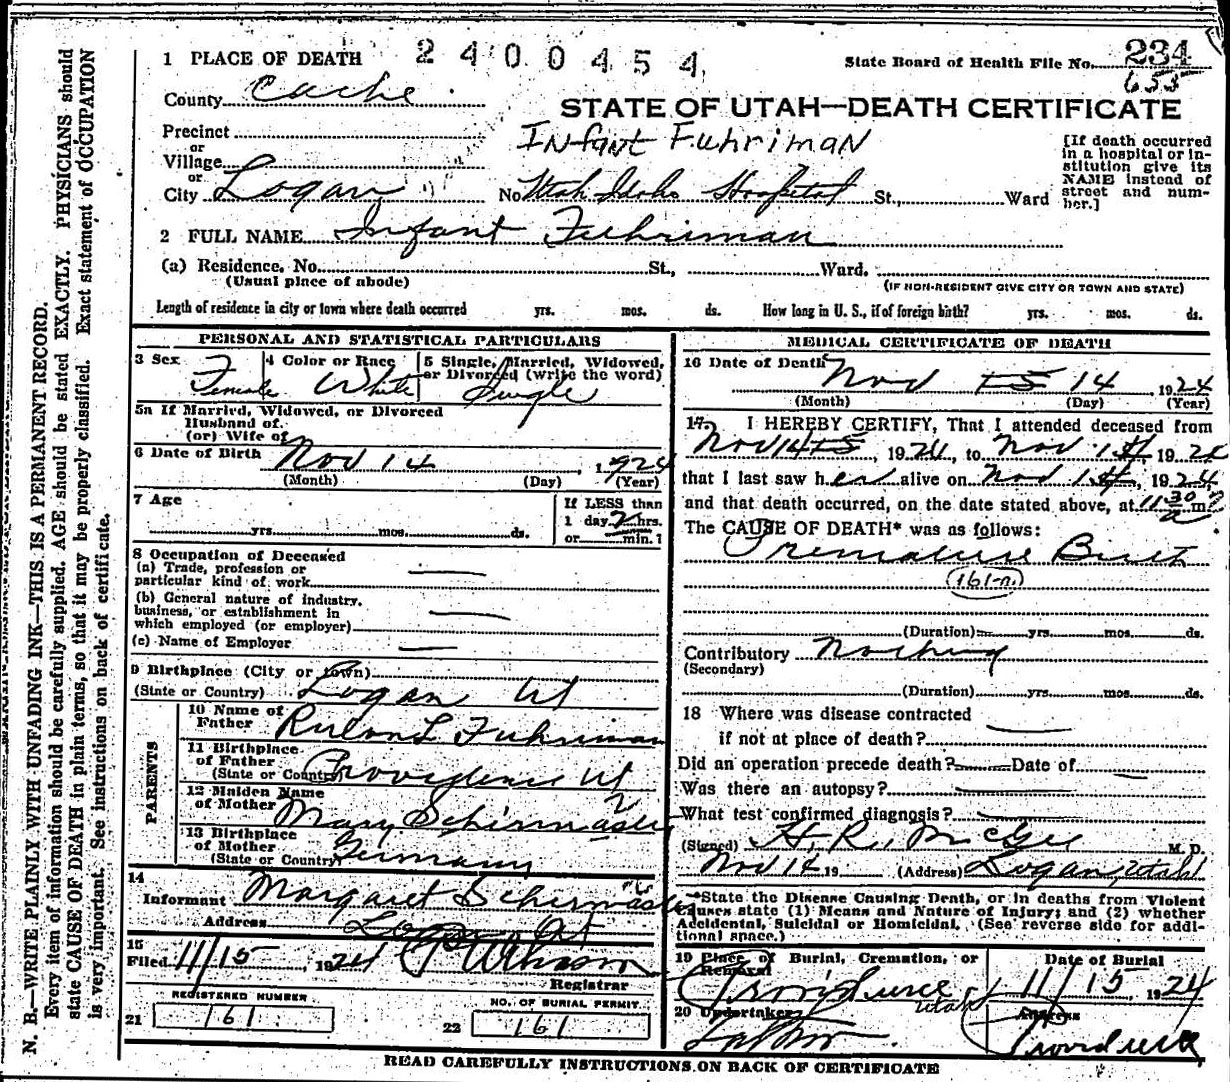 2400454
1 PLACE OF DEATH
State Board of Health File No. 234
653
County Cache
STATE OF UTAH—DEATH CERTIFICATE
Precinct
or
Village
or
City Logan
Infant Fuhriman
No. Utah Idaho Hospital St., Ward
[If death occurred
in a hospital or in-
stitution give its
NAME instead of
street and num-
ber.]
2 FULL NAME Infant Fuhriman
(a) Residence, No. St., Ward.
(Usual place of abode)
(IF NON-RESIDENT GIVE CITY OR TOWN AND STATE)
Length of residence in city or town where death occurred yrs. mos. ds. How long in U. S., if of foreign birth? yrs. mos. ds.
PERSONAL AND STATISTICAL PARTICULARS
3 Sex
Female
4 Color or Race
White
5 Single, Married, Widowed,
or Divorced (write the word)
Single
5a If Married, Widowed, or Divorced
Husband of
(or) Wife of
6 Date of Birth Nov 14, 1924
(Month) (Day) (Year)
7 Age
yrs. mos. ds.
If LESS than
1 day 2 hrs.
or min.?
8 Occupation of Deceased
(a) Trade, profession or
particular kind of work
(b) General nature of industry,
business, or establishment in
which employed (or employer)
(c) Name of Employer
9 Birthplace (City or Town)
(State or Country) Logan Ut
PARENTS
10 Name of
Father Rulon L Fuhriman
11 Birthplace
of Father
(State or Country) Providence Ut
12 Maiden Name
of Mother Mary Schirmaster
13 Birthplace
of Mother
(State or Country) Germany
14
Informant Margaret
Address Logan Ut
15
Filed 11/15, 1924
Registrar
REGISTERED NUMBER
21 161
NO. OF BURIAL PERMIT
22 161
MEDICAL CERTIFICATE OF DEATH
16 Date of Death
Nov 15 14 1924
(Month) (Day) (Year)
17 I HEREBY CERTIFY, That I attended deceased from
Nov 14 15, 1924, to Nov 14, 1924
that I last saw her alive on Nov 14, 1924,
and that death occurred, on the date stated above, at 11 30 a m.
The CAUSE OF DEATH* was as follows:
Premature Birth
161-a.
(Duration) yrs. mos. ds.
Contributory Nothing
(Secondary)
(Duration) yrs. mos. ds.
18 Where was disease contracted
if not at place of death?
Did an operation precede death? Date of
Was there an autopsy?
What test confirmed diagnosis?
(Signed) H. R. McGee M. D.
Nov 14 19 (Address) Logan, Utah
*State the Disease Causing Death, or in deaths from Violent
Causes state (1) Means and Nature of Injury; and (2) whether
Accidental, Suicidal or Homicidal. (See reverse side for addi-
tional space.)
19 Place of Burial, Cremation, or
Removal
Providence, Utah
Date of Burial
11/15, 1924
20 Undertaker
Address
Providence
READ CAREFULLY INSTRUCTIONS ON BACK OF CERTIFICATE
N. B.—WRITE PLAINLY WITH UNFADING INK—THIS IS A PERMANENT RECORD.
Every item of information should be carefully supplied. AGE should be stated EXACTLY. PHYSICIANS should
state CAUSE OF DEATH in plain terms, so that it may be properly classified. Exact statement of OCCUPATION
is very important. See instructions on back of certificate.